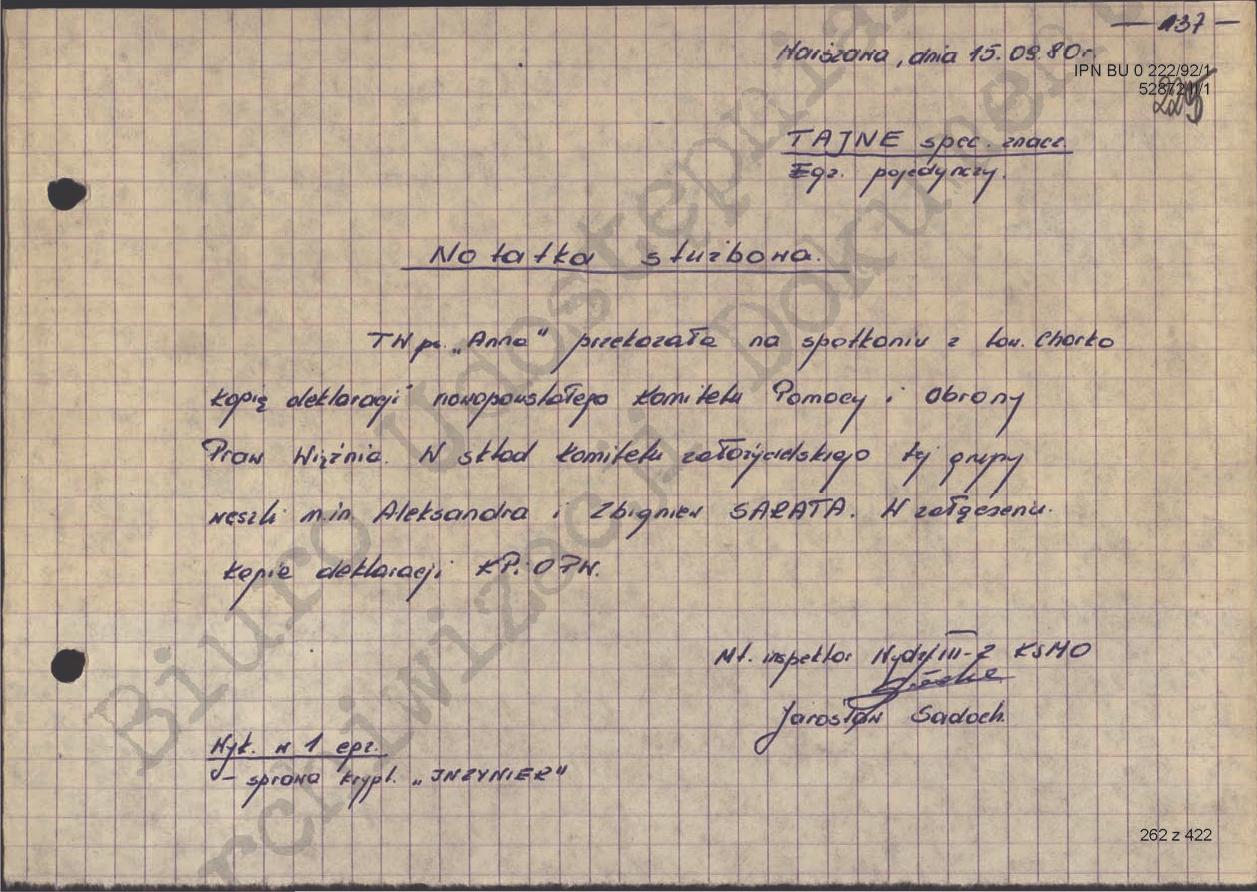 — 137 —
Warszawa, dnia 15.09.80r.
IPN BU 0 222/92/1
52872/II/1
225
TAJNE spec. znacz.
Egz. pojedynczy.
Notatka służbowa.
TW ps. „Anna" przekazała na spotkaniu z tow. Chorko
kopię deklaracji nowopowstałego Komitetu Pomocy i Obrony
Praw Więźnia. W skład komitetu założycielskiego tej grupy
weszli m.in. Aleksandra i Zbigniew SAŁATA. W załączeniu
kopia deklaracji KP. OPW.
Mł. inspektor Wydz. III-2 KSMO
Jarosław Sadoch.
Wyk. w 1 egz.
– sprawa krypt. „INŻYNIER"
262 z 422
Biuro Udostępniania
Archiwizacji Dokumentów